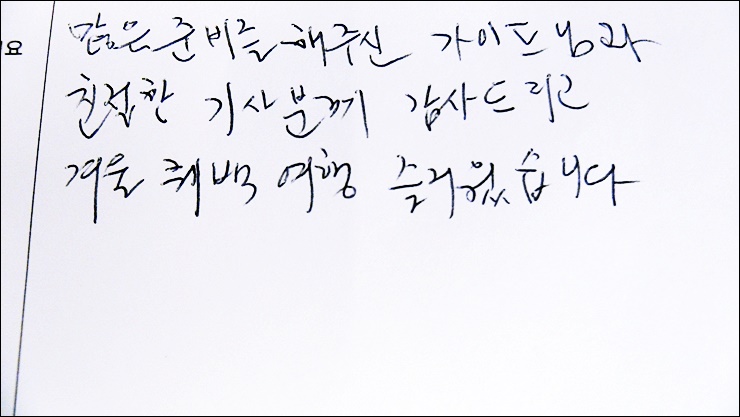 요
많은 준비를 해주신 가이드님과
친절한 기사분께 감사드리고
겨울 퀘백 여행 즐거웠습니다